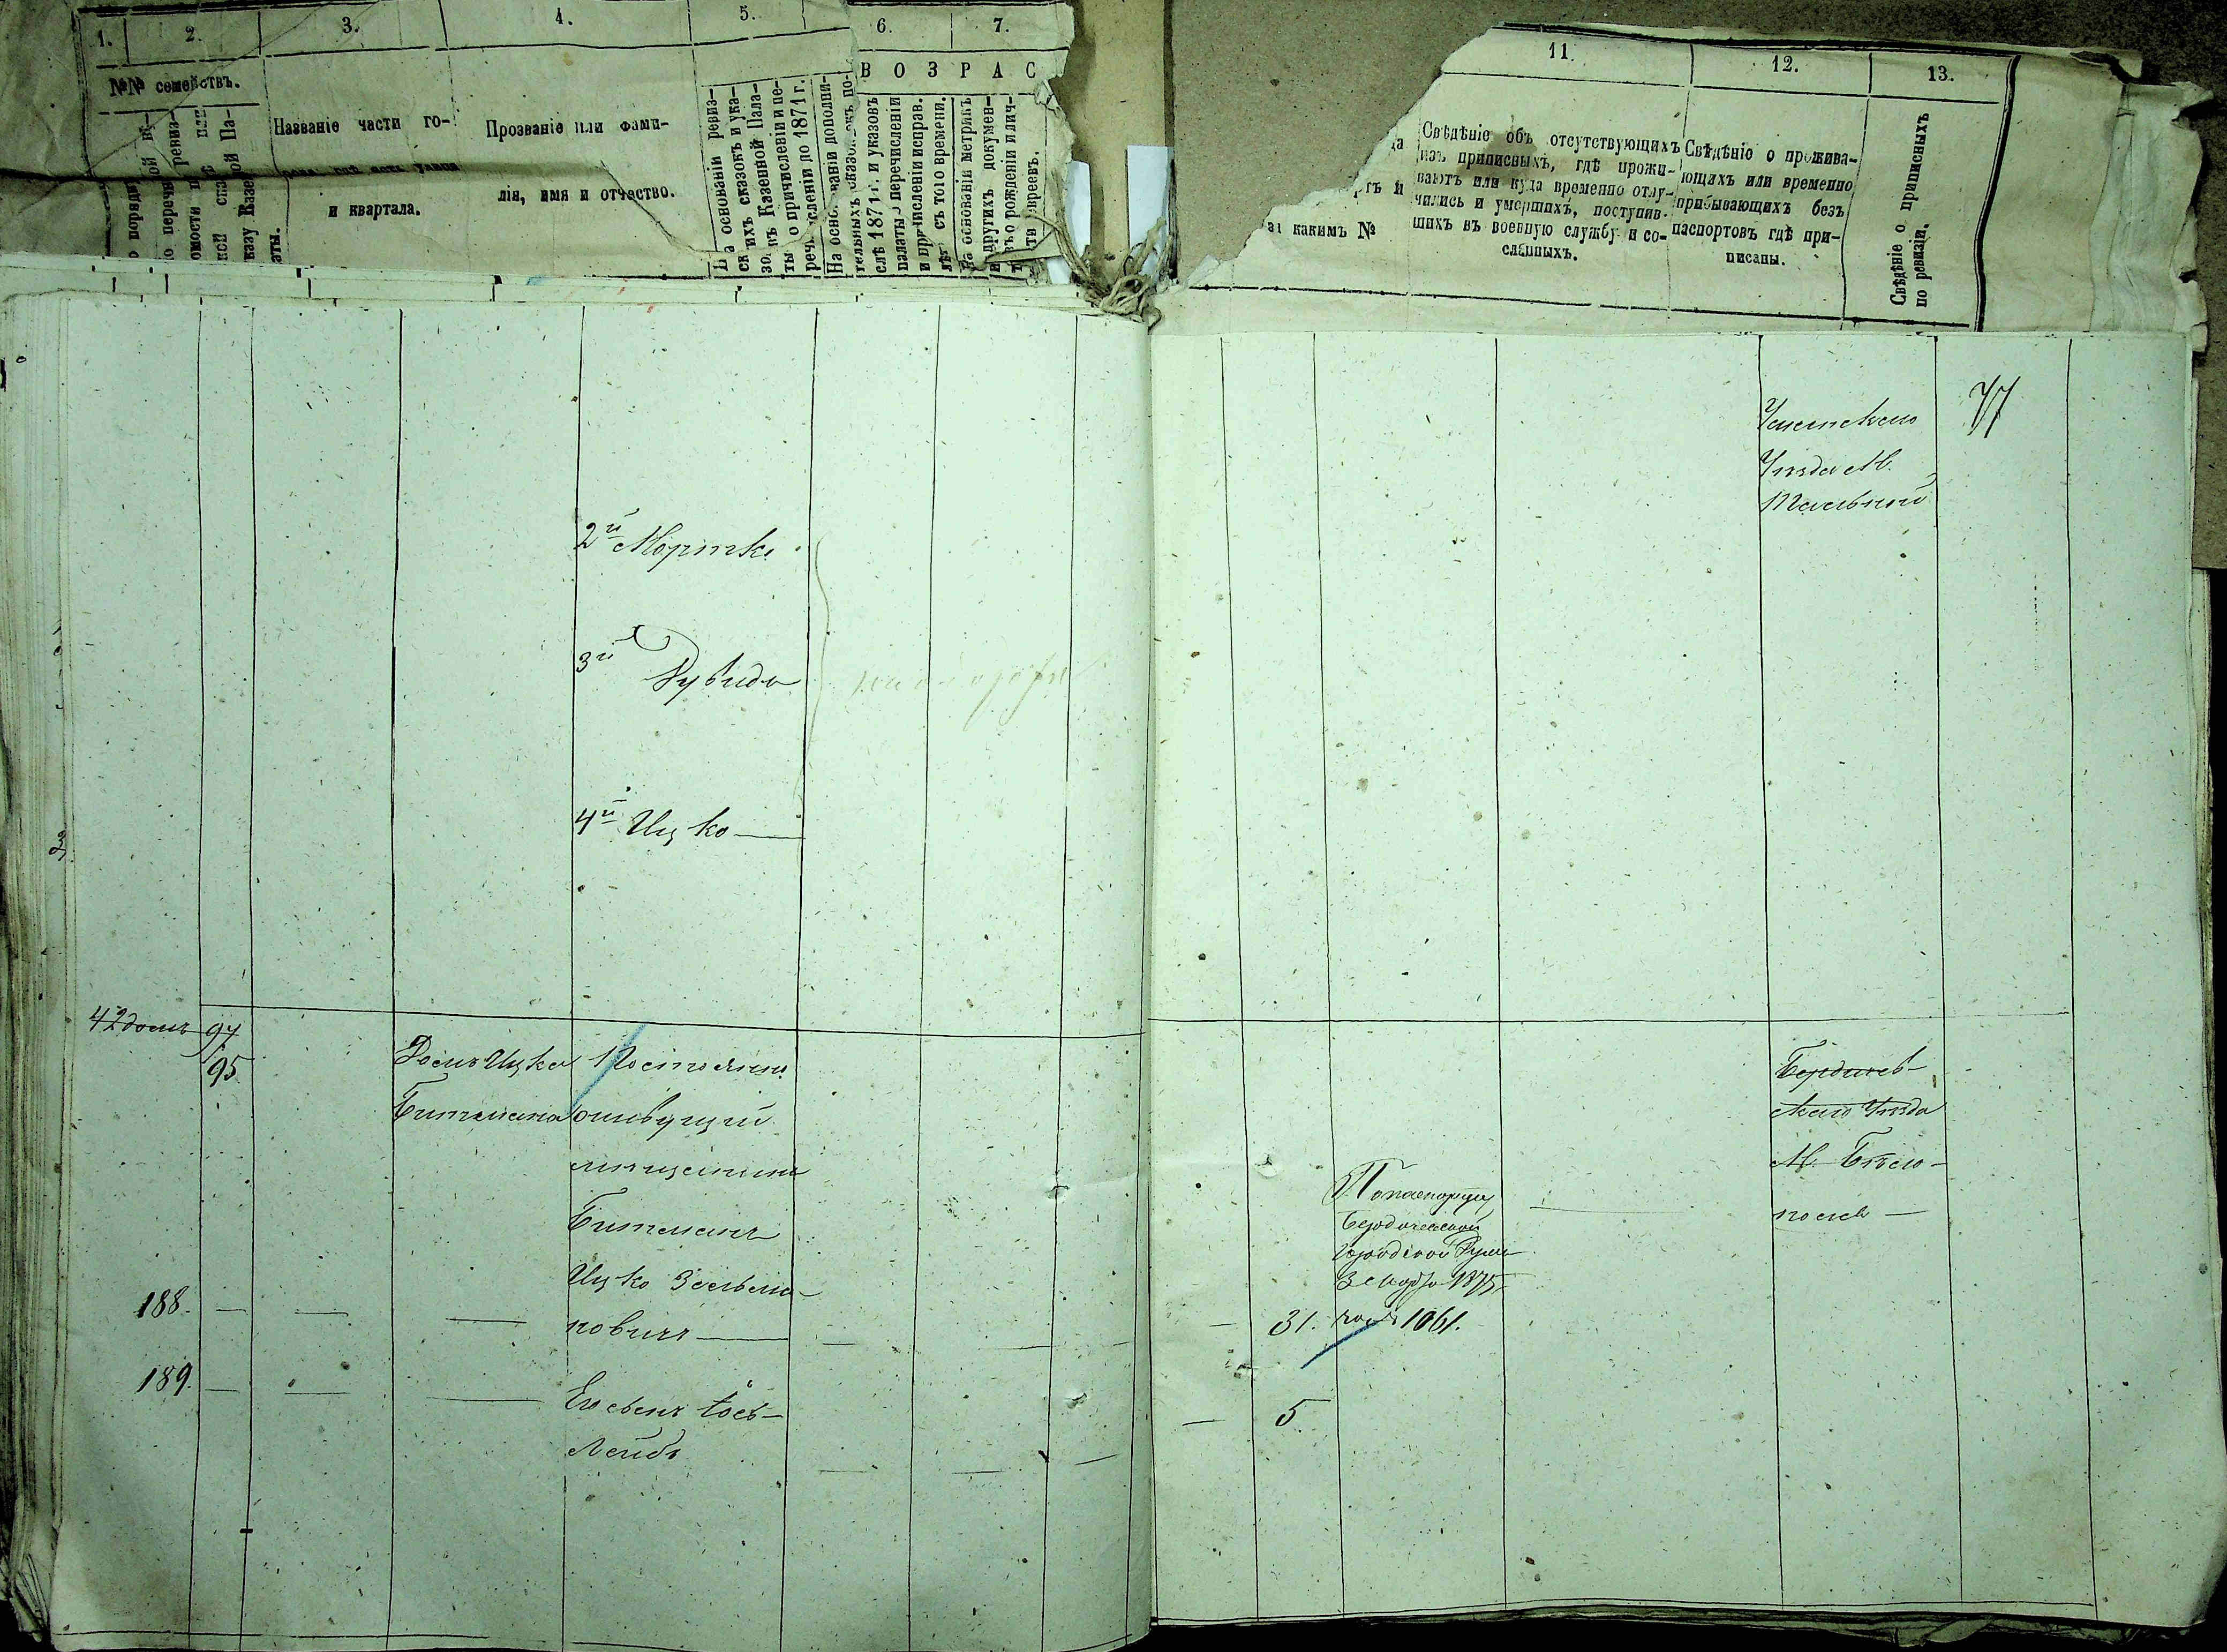 1. 2. 3. 4. 5. 6. 7.
№№ семействъ.
Названіе части го-
и квартала.
Прозваніе или фами-
лія, имя и отчество.
На основаніи ревиз-
скихъ сказокъ и ука-
зовъ Казенной Пала-
ты о причисленіи и пе-
речисленіи до 1871 г.
ВОЗРАС
На основаніи дополни-
тельныхъ сказокъ по-
слѣ 1871 г. и указовъ
палаты о перечисленіи
и причисленіи исправ.
лѣт съ того времени.
На основаніи метрикъ
и другихъ докумен-
о рожденіи и лич-
евреевъ.
11. 12. 13.
за какимъ №
Свѣдѣніе объ отсутствующихъ
изъ приписныхъ, гдѣ прожи-
ваютъ или куда временно отлу-
чились и умершихъ, поступив-
шихъ въ военную службу и со-
сланныхъ.
Свѣдѣніе о прожива-
ющихъ или временно
прибывающихъ безъ
паспортовъ гдѣ при-
писаны.
Свѣдѣніе о приписныхъ
по ревизіи.
77
Уманскаго
Уѣзда М.
Тальный
2й Мортко
3й Дувидъ
4й Ицко
42 домъ 94
95
Домъ Ицка
Битмана
Постоянно
живущій
мѣщанинъ
Битманъ
Ицко Зельма-
новичъ
188.
189.
Его сынъ Іось-
Лейбъ
31.
5
По паспорту
Бердичевской
Городской Думы
3 Марта 1875
года 1061.
Бердичев-
скаго Уѣзда
М. Бѣло-
полья